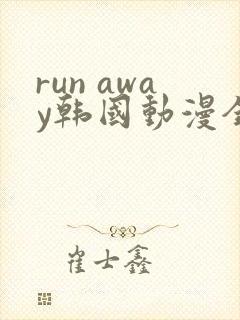 run awa
y韩國動漫全
崔士鑫